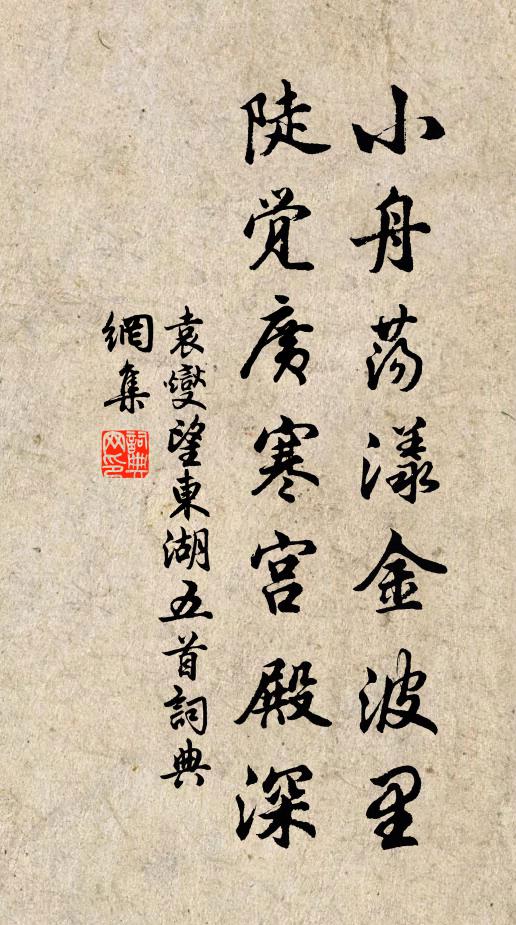 小舟荡漾金波里
陡觉廣寒宫殿深
袁燮望東湖五首詞典
網集
詞典
网印